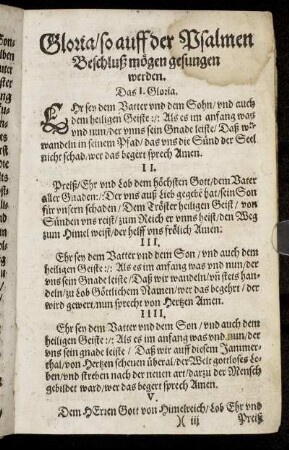 Gloria/ so auff der Psalmen
Beschluß mögen gesungen
werden.
Das I. Gloria.
EHr sey dem Vatter vnd dem Sohn/ vnd auch
dem heiligen Geiste :/: Als es im anfang was
vnd nun/ der vnns sein Gnade leiste/ Daß wir
wandeln in seinem Pfad/ das vns die Sünd der Seel
nicht schad/ wer das begert sprech Amen.
II.
Preiß/ Ehr vnd Lob dem höchsten Gott/ dem Vater
aller Gnaden:/: Der vns auß Lieb gegebē hat/ sein Son
für vnsern schaden/ Dem Tröster heiligen Geist/ von
Sünden vns reist/ zum Reich er vnns heist/ den Weg
zum Himel weist/ der helff vns frölich Amen.
III.
Ehr sey dem Vatter vnd dem Son/ vnd auch dem
heiligen Geiste :/: Als es im anfang was vnd nun/ der
vns sein Gnade leiste/ Daß wir wandeln/ vñ stets han-
deln/ zu Lob Göttlichem Namen/ wer das begehrt/ der
wird gewert/ nun sprecht von Hertzen Amen.
IIII.
Ehr sey dem Vatter vnd dem Son/ vnd auch dem
heiligen Geiste :/: Als es im anfang was vnd nun/ der
vns sein gnade leiste/ Daß wir auff diesem Jammer-
thal/ von Hertzen scheuen überal/ der Welt gottloses Le-
ben/ vnd streben nach der neuen art/ darzu der Mensch
gebildet ward/ wer das begert sprech Amen.
V.
Dem HErren Gott von Himelreich/ Lob Ehr vnd
)( iij Preiß